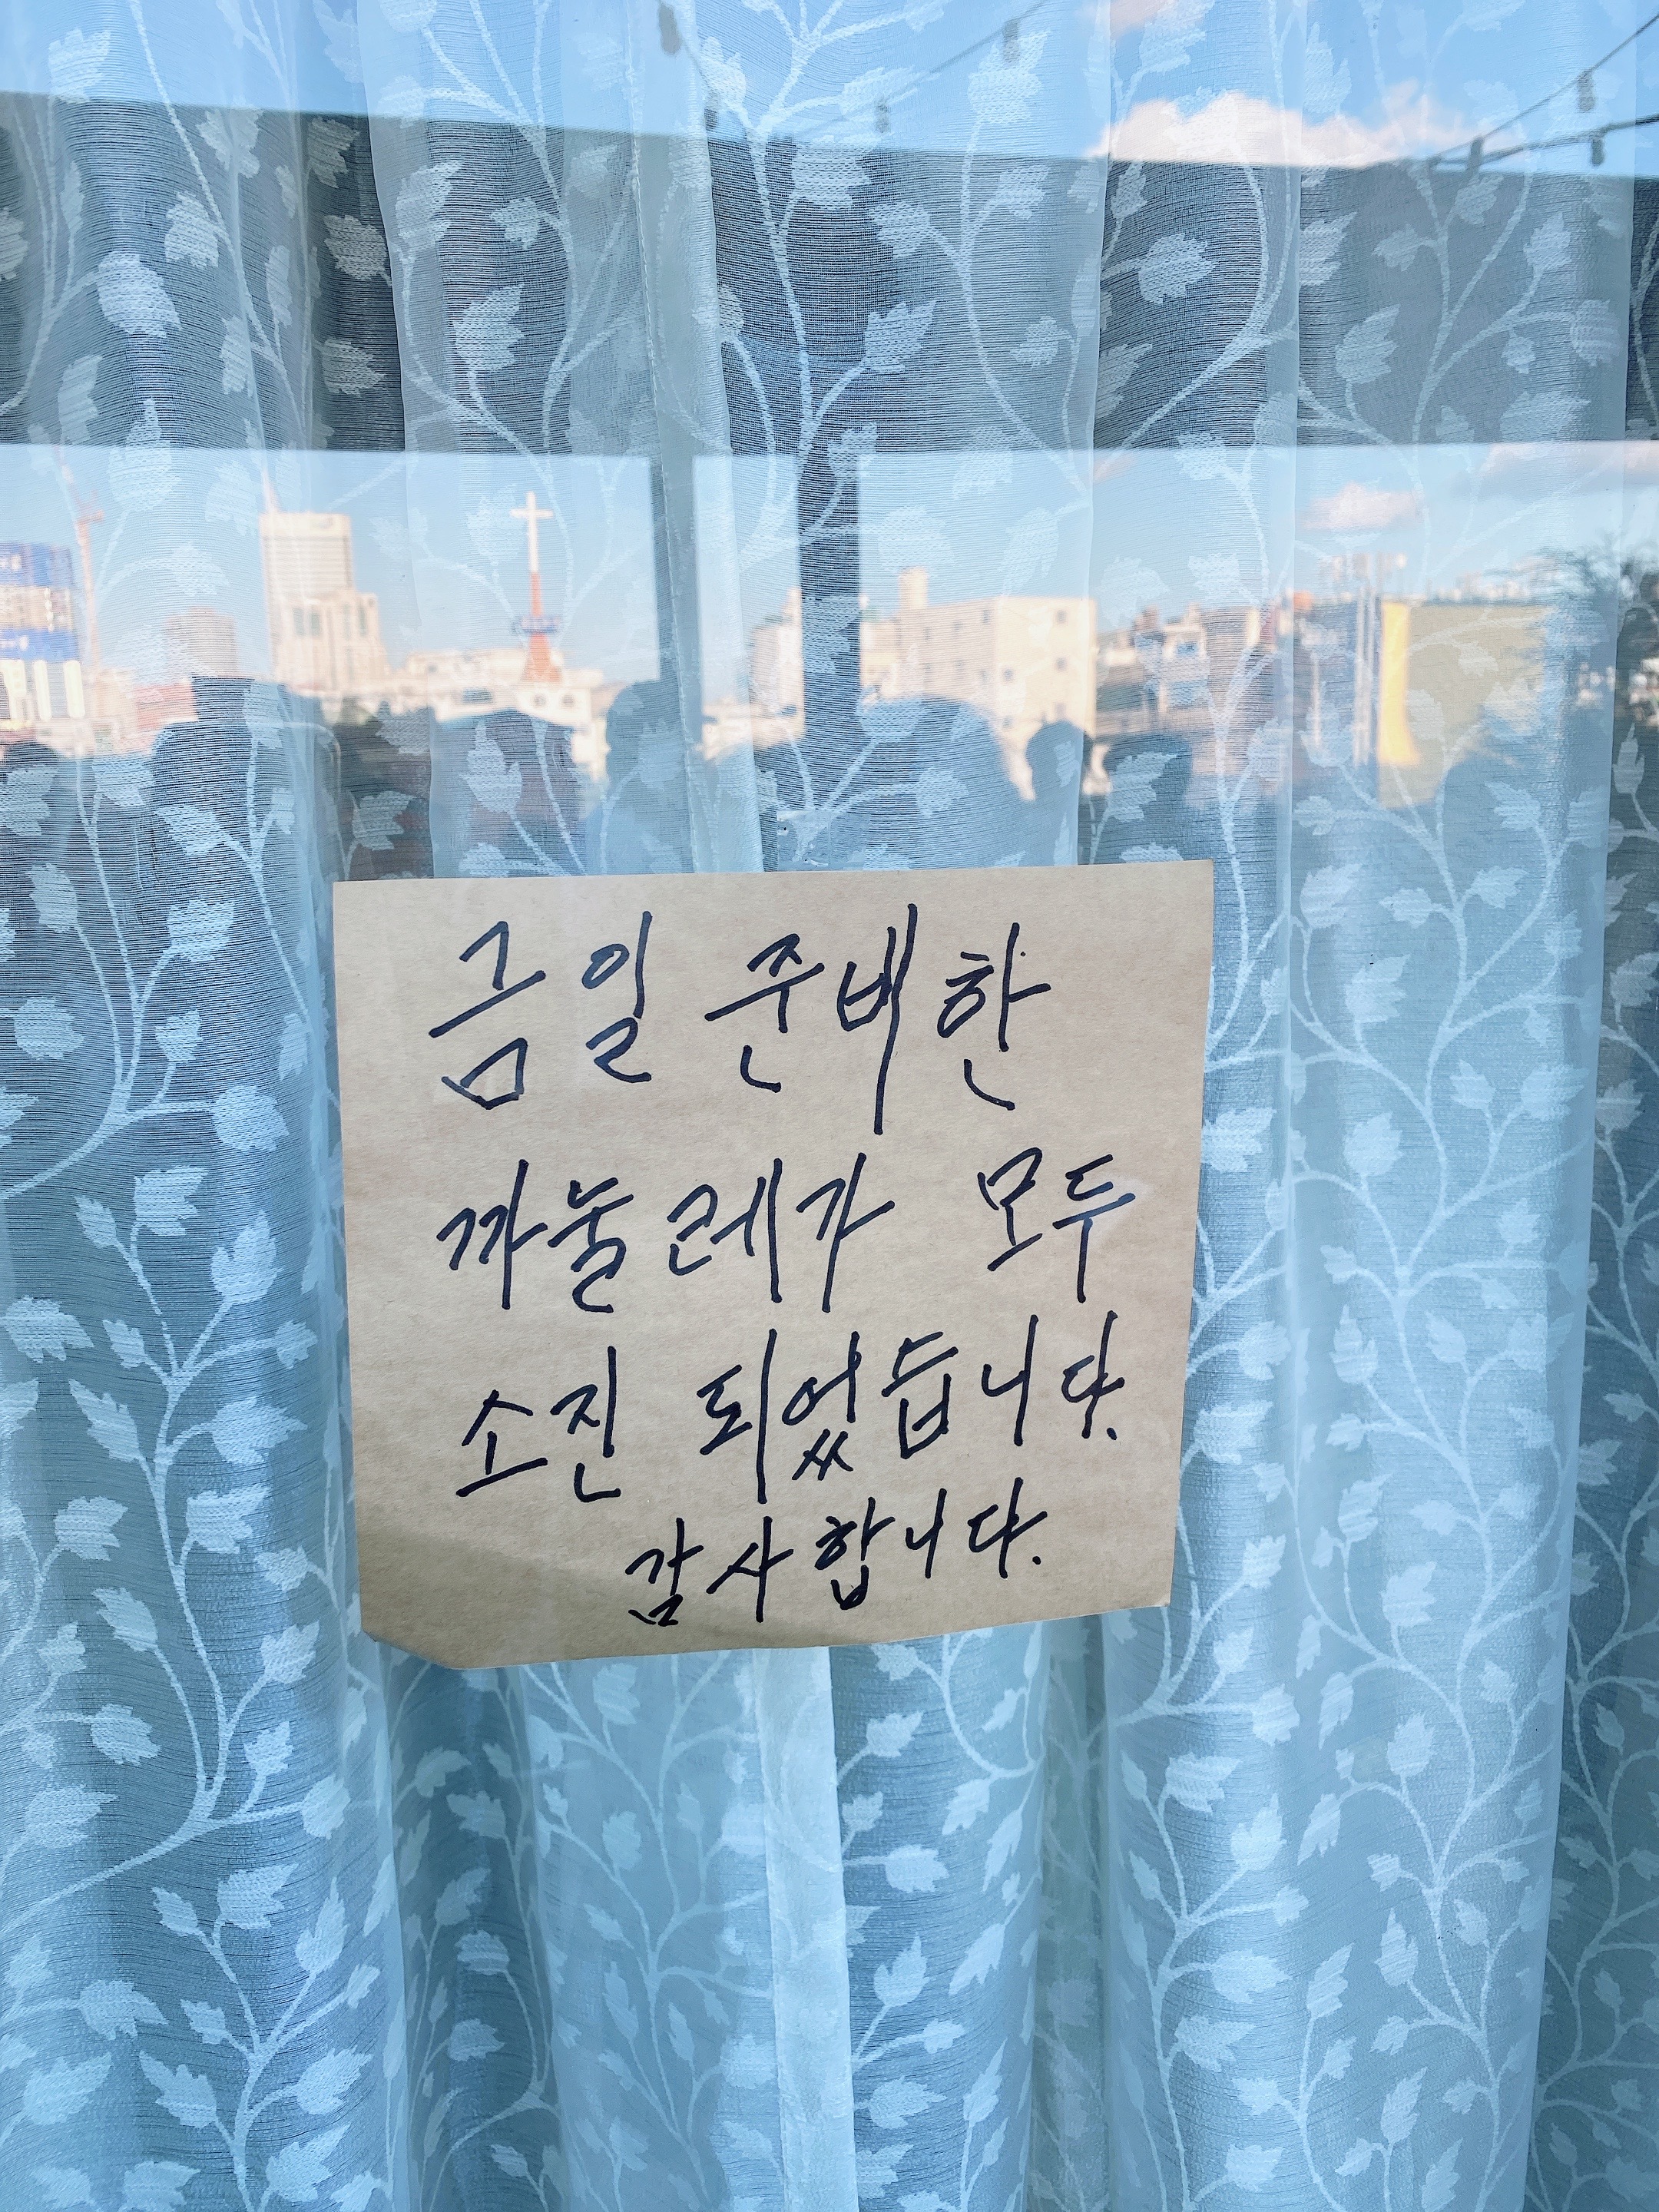 금일 준비한
까눌레가 모두
소진 되었습니다.
감사합니다.